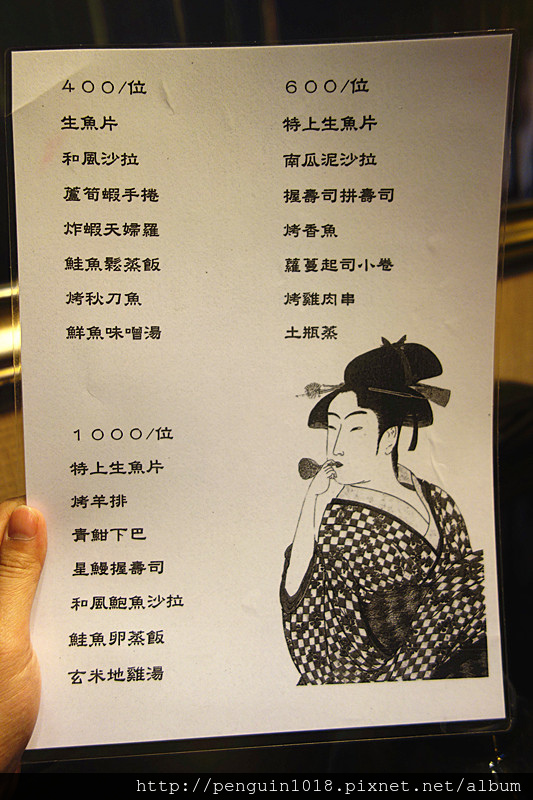 400/位
生魚片
和風沙拉
蘆筍蝦手捲
炸蝦天婦羅
鮭魚鬆蒸飯
烤秋刀魚
鮮魚味噌湯
600/位
特上生魚片
南瓜泥沙拉
握壽司拼壽司
烤香魚
蘿蔓起司小卷
烤雞肉串
土瓶蒸
1000/位
特上生魚片
烤羊排
青魽下巴
星鰻握壽司
和風鮑魚沙拉
鮭魚卵蒸飯
玄米地雞湯
http://penguin1018.pixnet.net/album